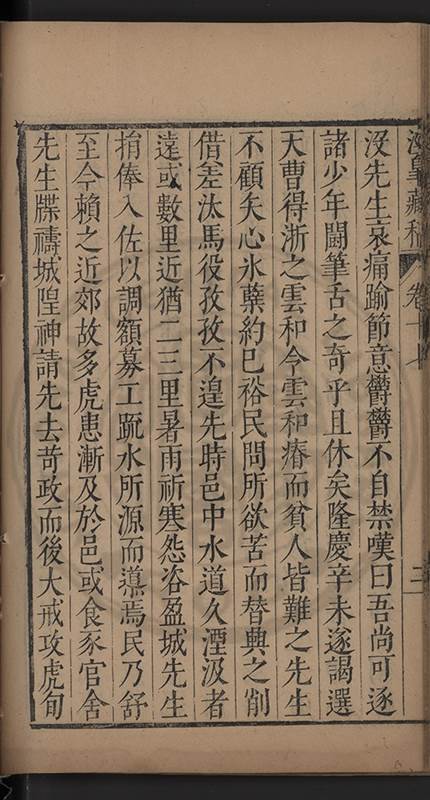 卷十七
二
沒先生哀痛踰節意鬱鬱不自禁嘆曰吾尚可逐
諸少年鬭筆舌之奇乎且休矣隆慶辛未遂謁選
天曹得浙之雲和今雲和瘠而貧人皆難之先生
不顧矢心氷蘗約已裕民問所欲苦而替典之削
借差汰馬役孜孜不遑先時邑中水道久湮汲者
遠或數里近猶二三里暑雨祈寒怨咨盈城先生
捐俸入佐以調額募工䟽水所源而導焉民乃舒
至今賴之近郊故多虎患漸及於邑或食豕官舍
先生牒禱城隍神請先去苛政而後大戒攻虎旬